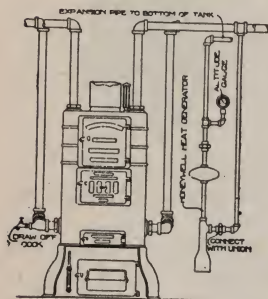 EXPANSION PIPE TO BOTTOM OF TANK
ALTITUDE
GAUGE
HONEYWELL HEAT GENERATOR
DRAW OFF
COCK
CONNECT
WITH UNION